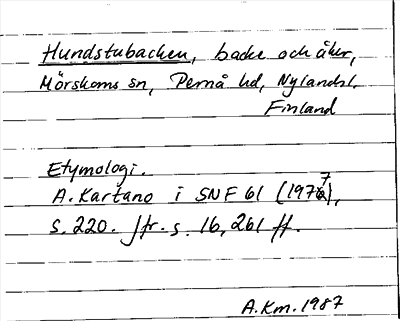 Hundstubacken, backe och åker,
Mörskoms sn, Pernå hd, Nylandsl.
Finland
Etymologi.
A. Kartano i SNF 61 (1977),
s. 220. Jfr. s. 16, 261 ff.
A.Km. 1987